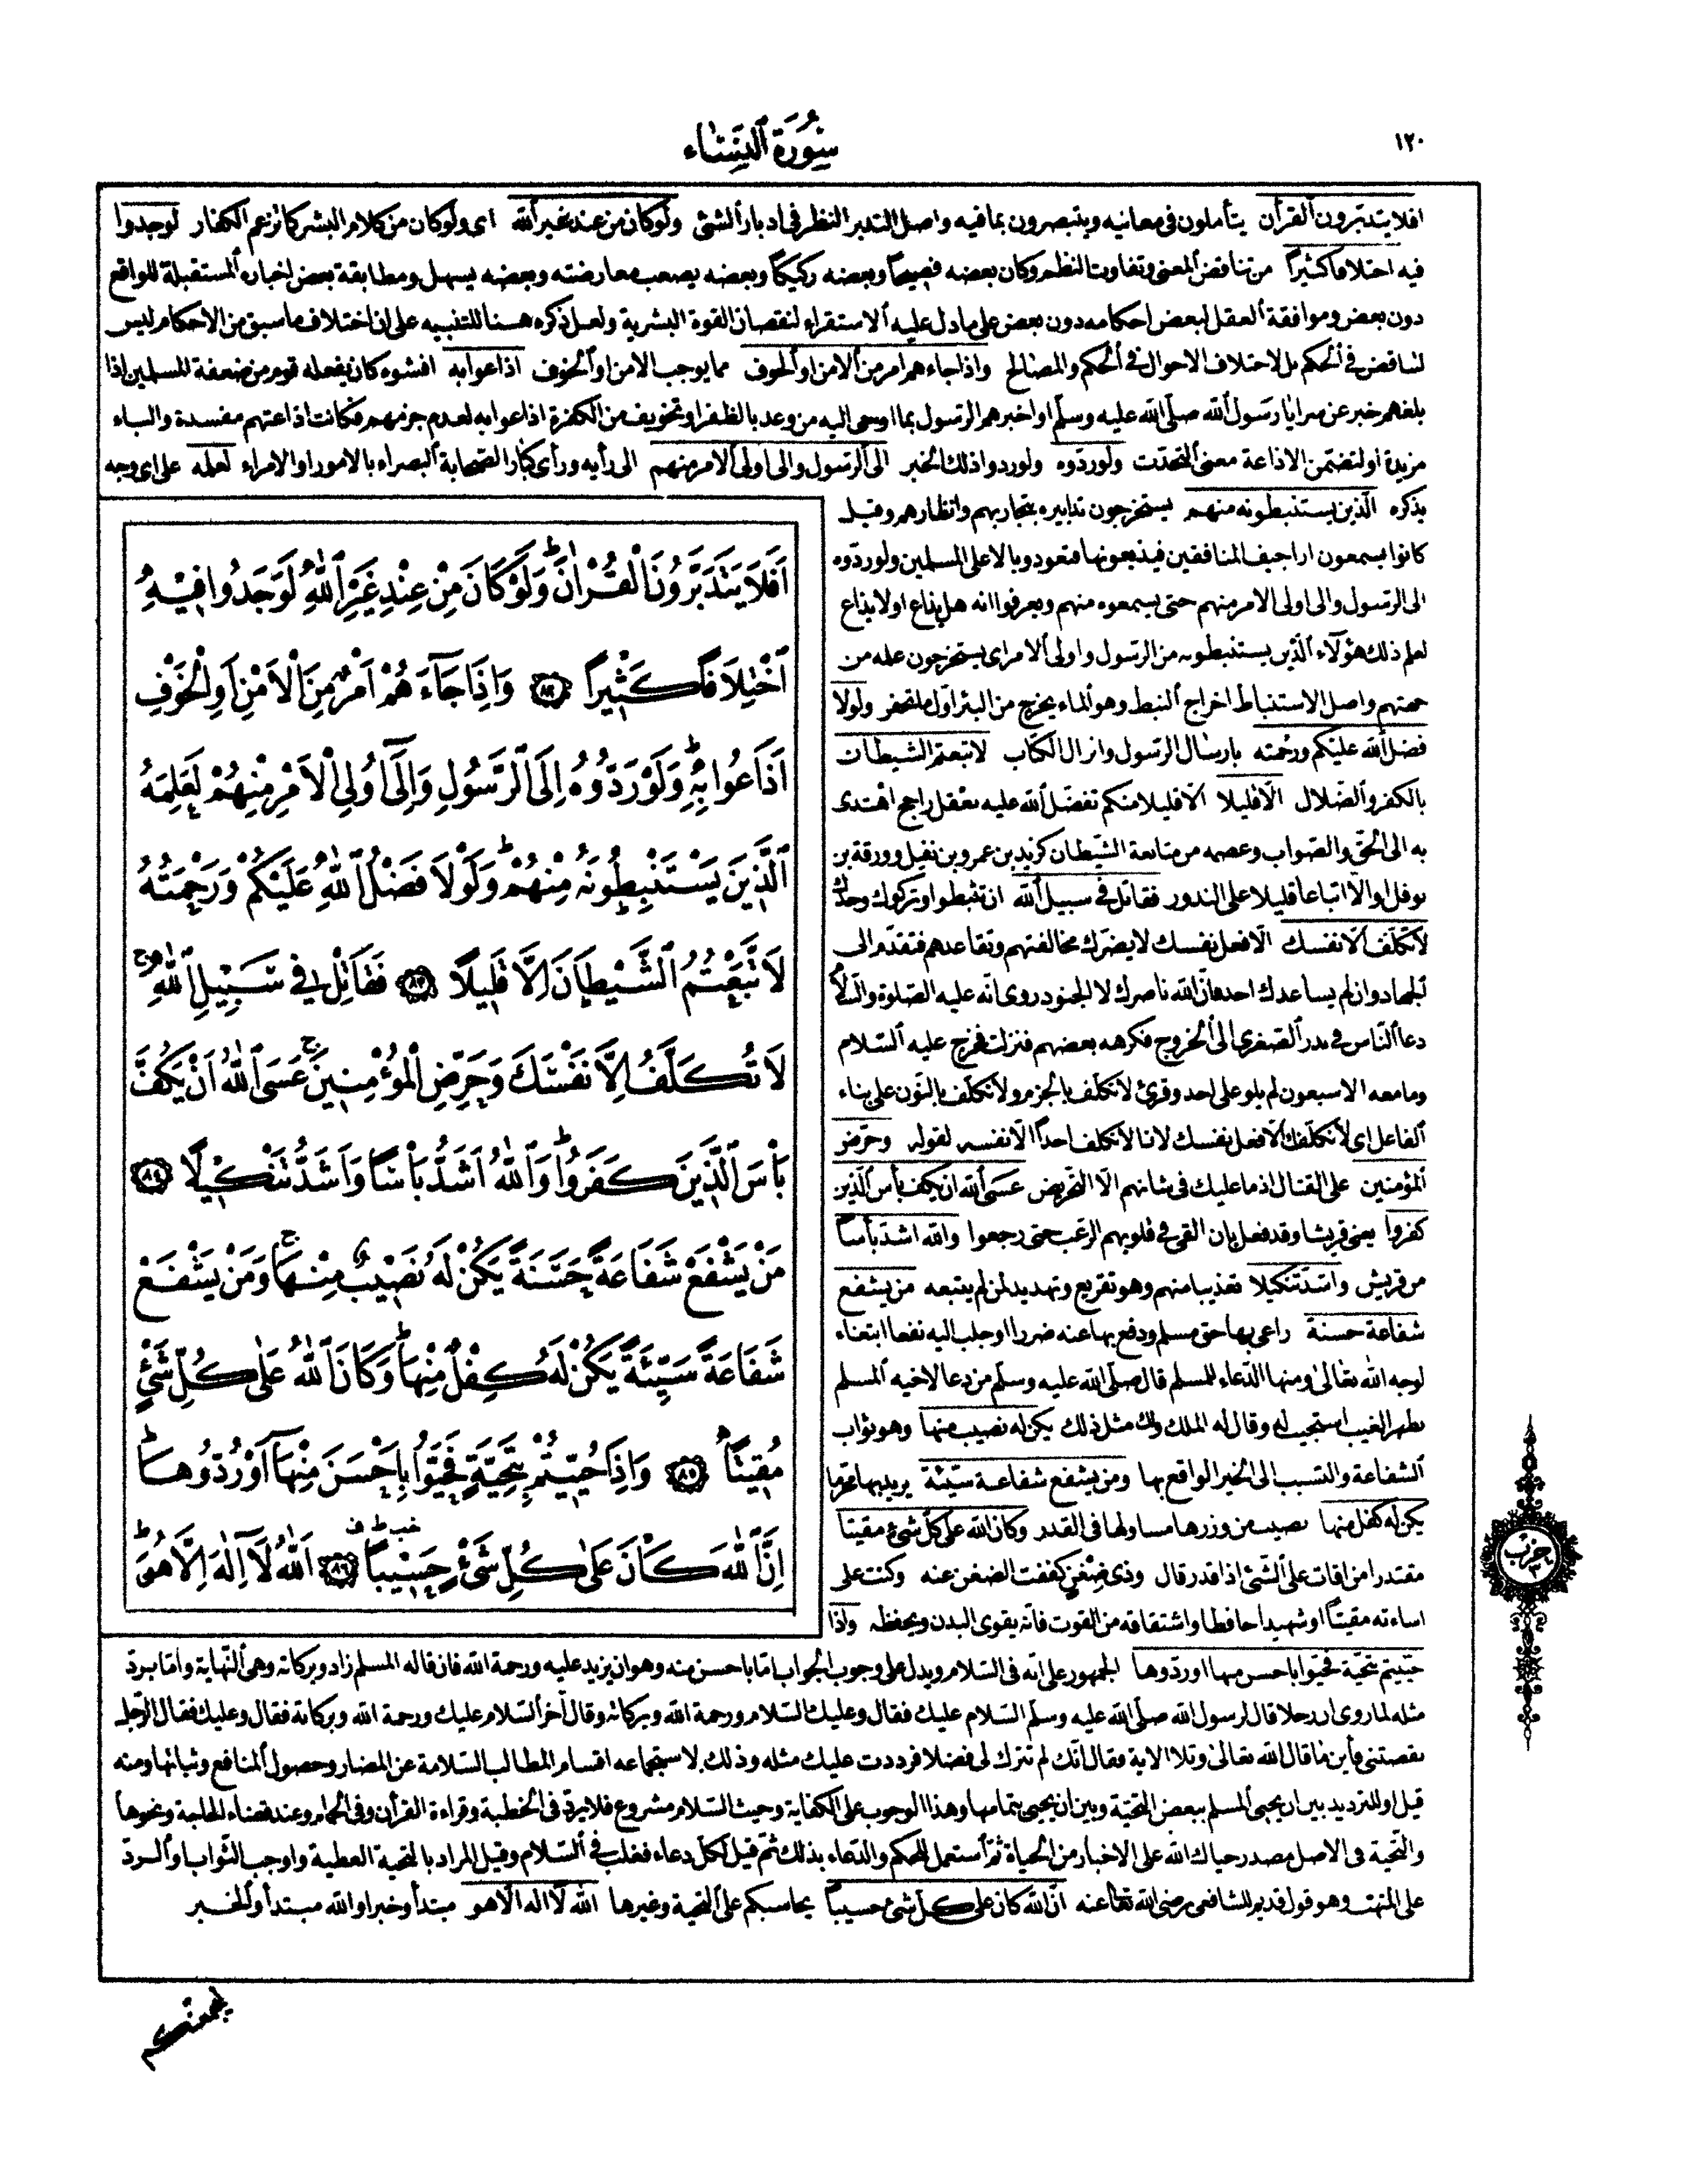 ١٢٠
سُورَةُ ٱلنِّسَاء
افلا يتدبرون ألقرأن يتأملون فى معانيه ويتبصرون بما فيه واصل التدبر النظر فى ادبار ألشئ ولو كان من عند غير ألله اى ولو كان من كلام البشر كما تزعم الكفار لوجدوا
فيه اختلافا كثيراً من تناقض ألمعنى وتفاوت النظم وكان بعضه فصيحاً وبعضه ركيكاً وبعضه يصعب معارضته وبعضه يسهل ومطابقة بعض اخباره ألمستقبلة للواقع
دون بعض وموافقة ألعقل لبعض احكامه دون بعض على ما دل عليه ألاستقراء لنقصان القوة البشرية ولعل ذكره هنا للتنبيه على ان اختلاف ما سبق من الاحكام ليس
لتناقض فى ألحكم بل لاختلاف الاحوال فى ألحكم والمصالح واذا جاءهم امر من ألامن او ألخوف مما يوجب الامن او ألخوف اذاعوا به افشوه كان يفعله قوم من ضعفة المسلمين اذا
بلغهم خبر عن سرايا رسول ألله صلّى ألله عليه وسلّم او اخبرهم الرسول بما اوحى اليه من وعد بالظفر او تخويف من الكفرة اذاعوا به لعدم جزمهم فكانت اذاعتهم مفسدة والباء
مزيدة او لتضمّن الاذاعة معنى ألتحدّث ولو ردّوه ولو ردوا ذلك الخبر الى ألرسول والى اولى ألامر منهم الى رأيه ورأى كبار الصحابة ألبصراء بالامور او الامراء لعلمه على اى وجه
يذكره الذين يستنبطونه منهم يستخرجون تدابيره بتجاربهم وانظارهم وقيل
كانوا يسمعون اراجيف المنافقين فيذيعونها فتعود وبالا على المسلمين ولو ردّوه
الى الرسول والى اولى الامر منهم حتى يسمعوه منهم ويعرفوا انه هل يذاع او لا يذاع
لعلم ذلك هؤلآء ألذين يستنبطونه من الرسول واولى ألامر اى يستخرجون علمه من
جهتهم واصل الاستنباط اخراج ألنبط وهو ألماء يخرج من البئر اوّل ما تحفر ولولا
فضل ألله عليكم ورحمته بارسال الرسول وانزال الكتاب لاتبعتم الشيطان
بالكفر وألضلال الّا قليلا ألّا قليلا منكم تفضّل ألله عليه بعقل راجح اهتدى
به الى الحقّ والصواب وعصمه من متابعة الشيطان كزيد بن عمرو بن نفيل وورقة بن
نوفل او الّا اتباعا قليلا على الندور فقاتل فى سبيل ألله ان تثبطوا وتركوك وحدك
لا تكلّف ألّا نفسك الّا فعل نفسك لا يضرّك مخالفتهم وتقاعدهم فتقدّم الى
ألجهاد وان لم يساعدك احد فانّ الله ناصرك لا الجنود روى انّه عليه الصلوة والسلام
دعا ألناس فى بدر ألصغرى الى ألخروج فكرهه بعضهم فنزلت فخرج عليه ألسلام
وما معه الا سبعون لم يلو على احد وقرئ لا تكلّف بالجزم ولا نكلّف بالنّون على بناء
ألفاعل اى لا نكلّفك الّا فعل نفسك لا انا لا نكلف احداً الّا نفسه لقوله وحرّض
ألمؤمنين على القتال اذ ما عليك فى شانهم الّا التحريض عسى ألله ان يكف بأس ألذين
كفروا يعنى قريشا وقد فعل بان القى فى قلوبهم الرعب حتى رجعوا والله اشد بأسا
من قريش واشدّ تنكيلا تعذيبا منهم وهو تقريع وتهديد لمن لم يتبعه من يشفع
شفاعة حسنة راعى بها حق مسلم ودفع بها عنه ضررا او جلب اليه نفعا ابتغاء
لوجه الله تعالى ومنها الدّعاء للمسلم قال صلّى ألله عليه وسلّم من دعا لاخيه ألمسلم
بظهر الغيب استجيب له وقال له الملك ولك مثل ذلك يكن له نصيب منها وهو ثواب
ألشفاعة والتسبب الى الخير الواقع بها ومن يشفع شفاعة سيّئة يريد بها محرّما
يكن له كفل منها نصيب من وزرها مساو لها فى القدر وكان الله على كل شئ مقيتا
مقتدرا من اقات على ألشئ اذا قدر قال وذى ضغن كففت الضغن عنه وكنت على
اساءته مقيتاً او شهيدا حافظا واشتقاقه من القوت فانّه يقوى البدن ويحفظه واذا
حيّيتم بتحيّة فحيّوا باحسن منها او ردّوها الجمهور على انّه فى السّلام ويدل على وجوب الجواب امّا باحسن منه وهو ان يزيد عليه ورحمة الله فان قاله المسلم زاد وبركاته وهى ألنهاية وامّا بردّ
مثله لما روى ان رجلا قال لرسول الله صلّى ألله عليه وسلّم السّلام عليك فقال وعليك السّلام ورحمة الله وبركاته وقال آخر ألسلام عليك ورحمة الله وبركاته فقال وعليك فقال الرّجل
نقصتنى فأين ما قال الله تعالى وتلا الاية فقال انّك لم تترك لى فضلا فرددت عليك مثله وذلك لاستجماعه اقسام المطالب السّلامة عن المضار وحصول ألمنافع وثباتها ومنه
قيل او للترديد بين ان يحيى ألمسلم ببعض التحيّة وبين ان يحيى بتمامها وهذا الوجوب على الكفاية وحيث السّلام مشروع فلا يردّ فى الخطبة وقراءة القرأن وفى الحمام وعند قضاء الحاجة ونحوها
والتّحية فى الاصل مصدر حياك الله على الاخبار من الحياة ثمّ أستعمل للحكم والدّعاء بذلك ثمّ قيل لكل دعاء فغلب فى ألسلام وقيل المراد بالتحية العطية واوجب الثّواب وألردّ
على المتهب وهو قول قديم للشافعى رضى الله تعالى عنه انّ الله كان على كل شئ حسيباً يحاسبكم على ألتحية وغيرها الله لا اله الّا هو مبتدأ وخبر او الله مبتدأ وألخبر
اَفَلَا يَتَدَبَّرُونَ الْقُرْاٰنَ وَلَوْ كَانَ مِنْ عِنْدِ غَيْرِ اللّٰهِ لَوَجَدُوا ف۪يهِ
اخْتِلَافاً كَث۪يراً ٨٢ وَاِذَا جَٓاءَهُمْ اَمْرٌ مِنَ الْاَمْنِ اَوِ الْخَوْفِ
اَذَاعُوا بِه۪ وَلَوْ رَدُّوهُ اِلَى الرَّسُولِ وَاِلٰٓى اُو۬لِي الْاَمْرِ مِنْهُمْ لَعَلِمَهُ
الَّذ۪ينَ يَسْتَنْبِطُونَهُ مِنْهُمْ وَلَوْلَا فَضْلُ اللّٰهِ عَلَيْكُمْ وَرَحْمَتُهُ
لَاتَّبَعْتُمُ الشَّيْطَانَ اِلَّا قَل۪يلاً ٨٣ فَقَاتِلْ ف۪ي سَب۪يلِ اللّٰهِ
لَا تُكَلَّفُ اِلَّا نَفْسَكَ وَحَرِّضِ الْمُؤْمِن۪ينَ عَسَى اللّٰهُ اَنْ يَكُفَّ
بَأْسَ الَّذ۪ينَ كَفَرُوا وَاللّٰهُ اَشَدُّ بَأْساً وَاَشَدُّ تَنْك۪يلاً ٨٤
مَنْ يَشْفَعْ شَفَاعَةً حَسَنَةً يَكُنْ لَهُ نَص۪يبٌ مِنْهَا وَمَنْ يَشْفَعْ
شَفَاعَةً سَيِّئَةً يَكُنْ لَهُ كِفْلٌ مِنْهَا وَكَانَ اللّٰهُ عَلٰى كُلِّ شَيْءٍ
مُق۪يتاً ٨٥ وَاِذَا حُيّ۪يتُمْ بِتَحِيَّةٍ فَحَيُّوا بِاَحْسَنَ مِنْهَٓا اَوْ رُدُّوهَا
اِنَّ اللّٰهَ كَانَ عَلٰى كُلِّ شَيْءٍ حَس۪يباً ٨٦ اَللّٰهُ لَٓا اِلٰهَ اِلَّا هُوَ
حزب
ليجمعنكم